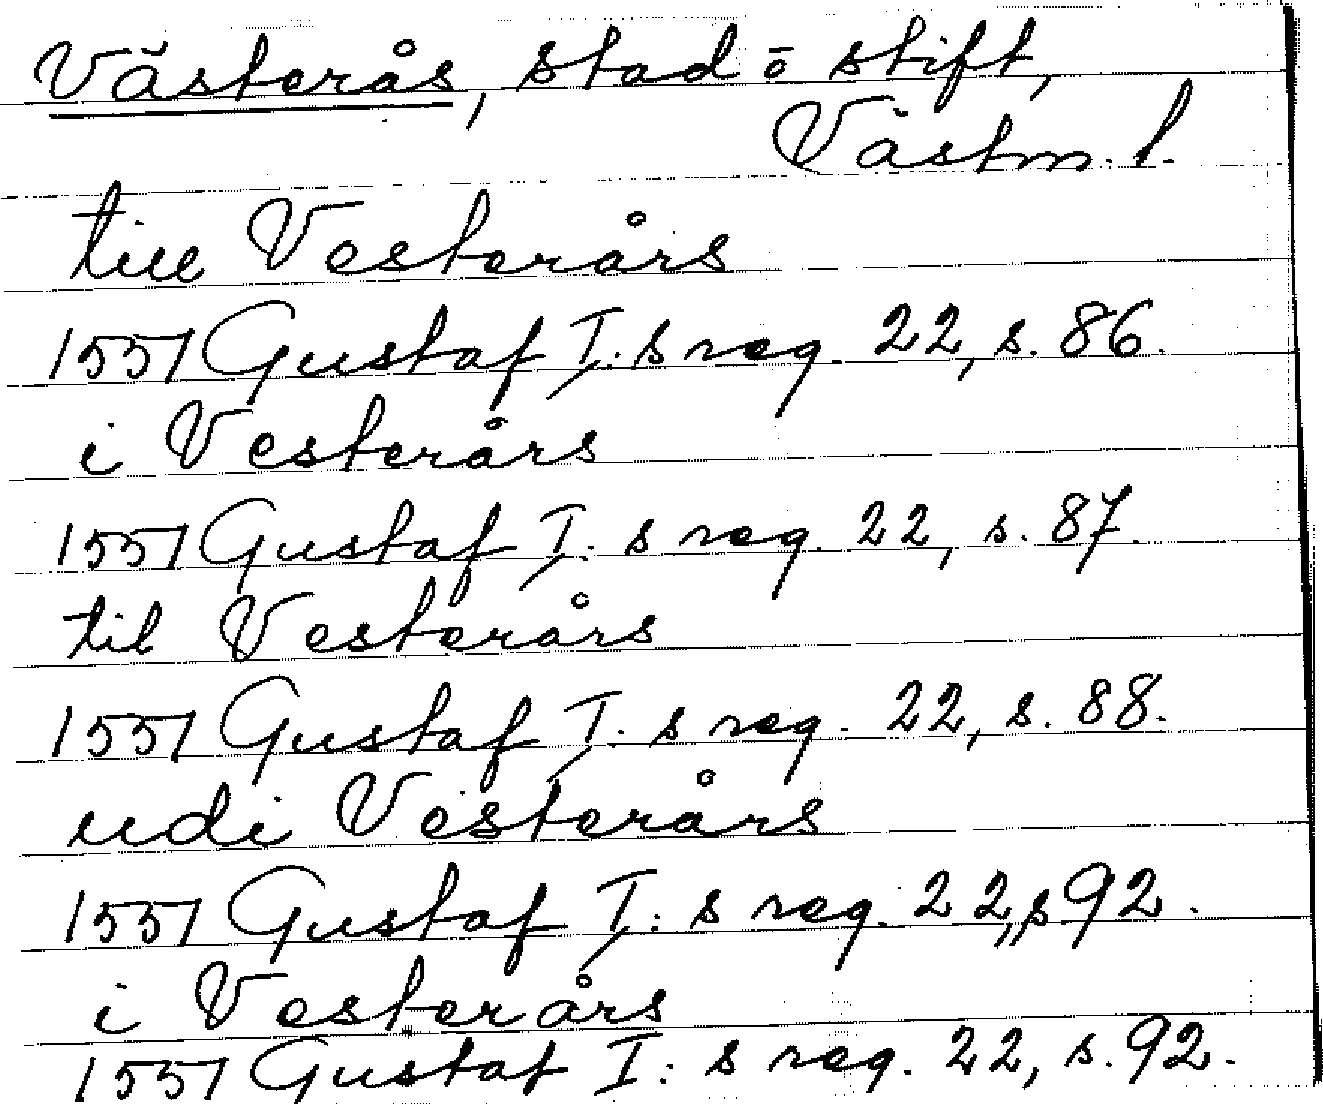 Västerås, stad o stift,
Västm. l.
till Vesterårs
1551 Gustaf I:s reg. 22, s. 86.
i Vesterårs
1551 Gustaf I:s reg. 22, s. 87.
til Vesterårs
1551 Gustaf I:s reg. 22, s. 88.
udi Vesterårs
1551 Gustaf I:s reg. 22, s 92.
i Vesterårs
1551 Gustaf I:s reg. 22, s. 92.